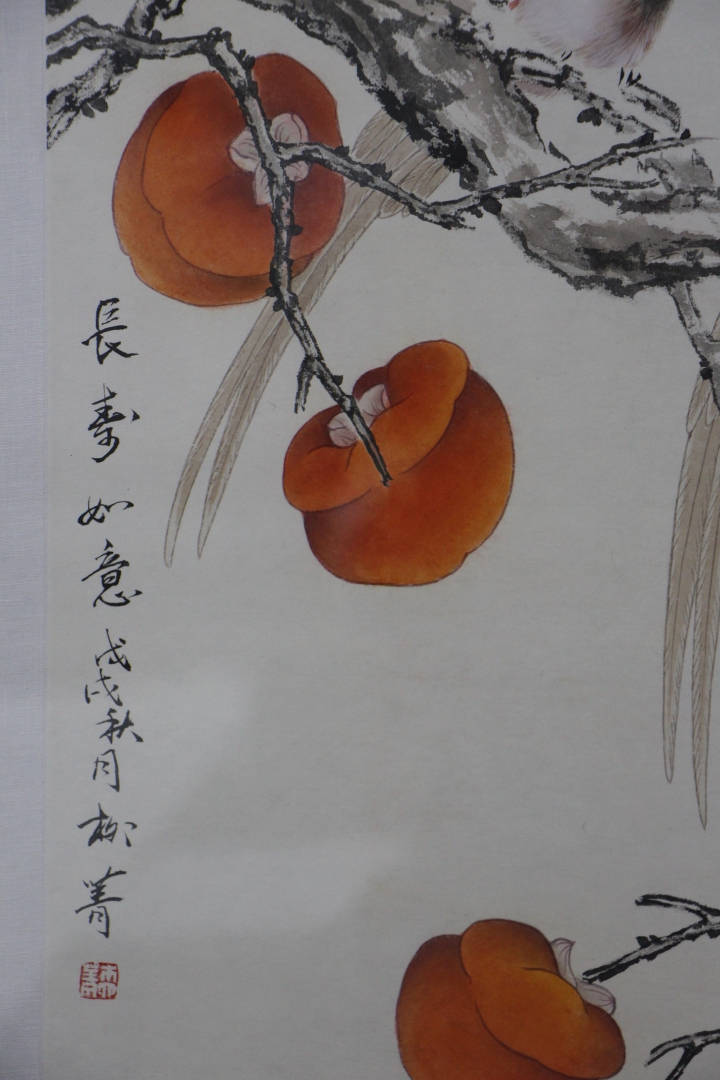 長壽如意戊戌秋月柳菁